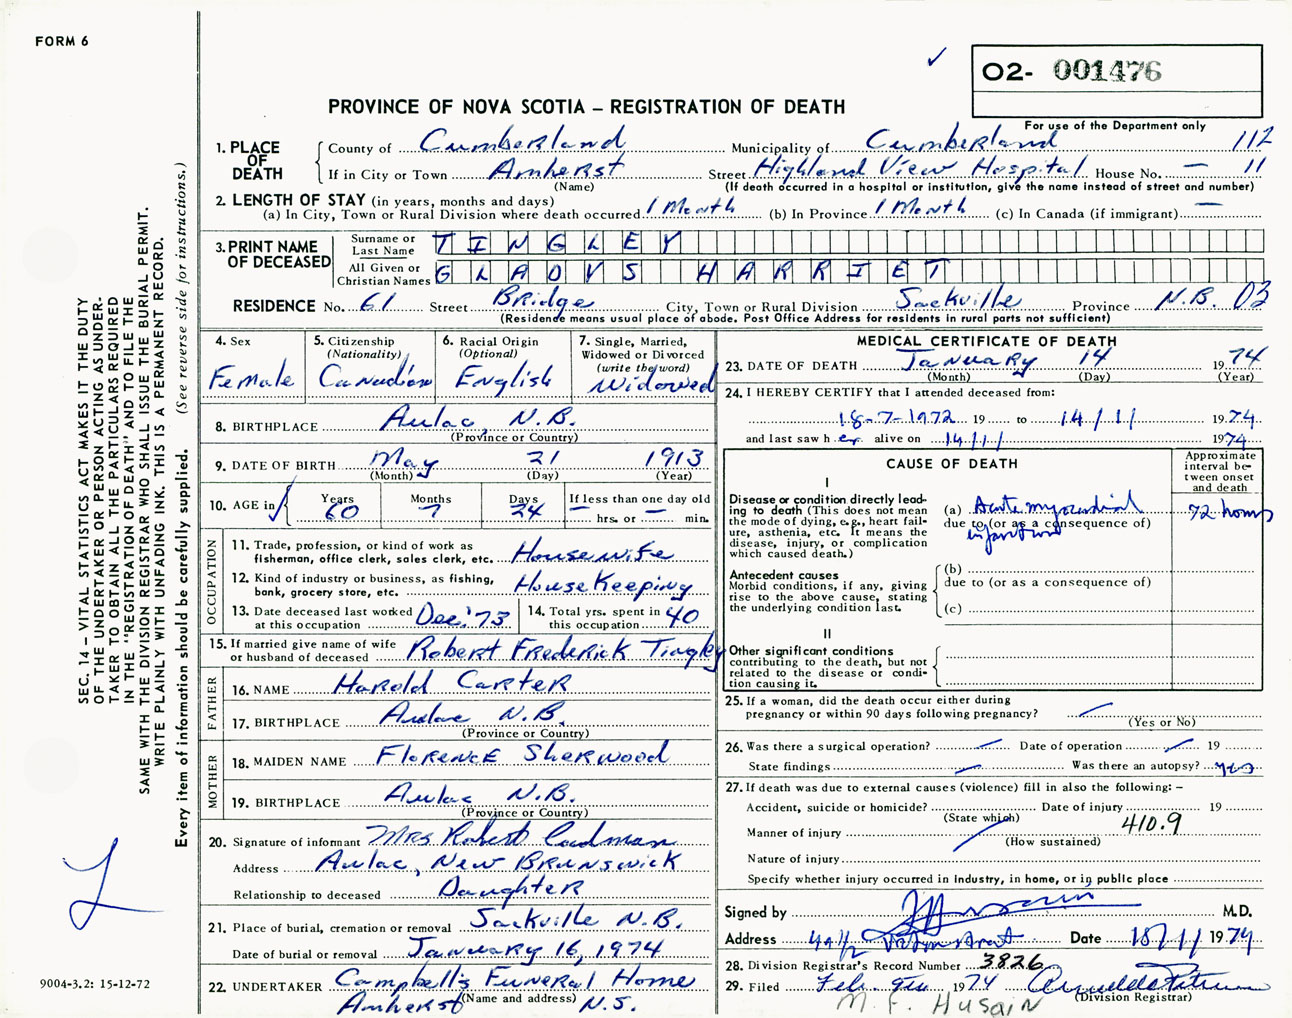 FORM 6
O2- 001476
PROVINCE OF NOVA SCOTIA – REGISTRATION OF DEATH
For use of the Department only
1. PLACE OF DEATH
County of Cumberland Municipality of Cumberland 112
If in City or Town Amherst Street Highland View Hospital House No. — 11
(Name) (If death occurred in a hospital or institution, give the name instead of street and number)
2. LENGTH OF STAY (in years, months and days)
(a) In City, Town or Rural Division where death occurred. 1 Month (b) In Province 1 Month (c) In Canada (if immigrant) —
3. PRINT NAME OF DECEASED
Surname or Last Name TINGLEY
All Given or Christian Names GLADYS HARRIET
RESIDENCE No. 61 Street Bridge City, Town or Rural Division Sackville Province N.B. 03
(Residence means usual place of abode. Post Office Address for residents in rural parts not sufficient)
4. Sex
Female
5. Citizenship
(Nationality)
Canadian
6. Racial Origin
(Optional)
English
7. Single, Married,
Widowed or Divorced
(write the word)
Widowed
8. BIRTHPLACE Aulac, N.B.
(Province or Country)
9. DATE OF BIRTH May 21 1913
(Month) (Day) (Year)
10. AGE in
Years Months Days If less than one day old
60 7 24 — hrs. or — min.
OCCUPATION
11. Trade, profession, or kind of work as
fisherman, office clerk, sales clerk, etc. Housewife
12. Kind of industry or business, as fishing,
bank, grocery store, etc. HouseKeeping
13. Date deceased last worked
at this occupation Dec. '73
14. Total yrs. spent in
this occupation 40
15. If married give name of wife
or husband of deceased Robert Frederick Tingley
FATHER
16. NAME Harold Carter
17. BIRTHPLACE Aulac N.B.
(Province or Country)
MOTHER
18. MAIDEN NAME Florence Sherwood
19. BIRTHPLACE Aulac N.B.
(Province or Country)
20. Signature of informant Mrs Robert Cadman
Address Aulac, New Brunswick
Relationship to deceased Daughter
21. Place of burial, cremation or removal Sackville N.B.
Date of burial or removal January 16, 1974
22. UNDERTAKER Campbell's Funeral Home
(Name and address)
Amherst N.S.
MEDICAL CERTIFICATE OF DEATH
23. DATE OF DEATH January 14 1974
(Month) (Day) (Year)
24. I HEREBY CERTIFY that I attended deceased from:
18-7-1972 19 to 14/1/ 1974
and last saw her alive on 14/1/ 1974
CAUSE OF DEATH
Approximate
interval be-
tween onset
and death
I
Disease or condition directly lead-
ing to death (This does not mean
the mode of dying, e.g., heart fail-
ure, asthenia, etc. It means the
disease, injury, or complication
which caused death.)
(a) Acute myocardial 72 hours
due to (or as a consequence of)
infarction
Antecedent causes
Morbid conditions, if any, giving
rise to the above cause, stating
the underlying condition last.
(b)
due to (or as a consequence of)
(c)
II
Other significant conditions
contributing to the death, but not
related to the disease or condi-
tion causing it.
25. If a woman, did the death occur either during
pregnancy or within 90 days following pregnancy?
(Yes or No)
26. Was there a surgical operation? Date of operation 19
State findings Was there an autopsy? yes
27. If death was due to external causes (violence) fill in also the following: –
Accident, suicide or homicide? Date of injury 19
(State which)
Manner of injury 410.9
(How sustained)
Nature of injury
Specify whether injury occurred in industry, in home, or in public place
Signed by M.D.
Address Date 18/1/ 1974
28. Division Registrar's Record Number 3826
29. Filed Feb. 1974
(Division Registrar)
M. F. Husain
SEC. 14 – VITAL STATISTICS ACT MAKES IT THE DUTY
OF THE UNDERTAKER OR PERSON ACTING AS UNDER-
TAKER TO OBTAIN ALL THE PARTICULARS REQUIRED
IN THE "REGISTRATION OF DEATH" AND TO FILE THE
SAME WITH THE DIVISION REGISTRAR WHO SHALL ISSUE THE BURIAL PERMIT.
WRITE PLAINLY WITH UNFADING INK. THIS IS A PERMANENT RECORD.
Every item of information should be carefully supplied. (See reverse side for instructions.)
9004-3.2: 15-12-72